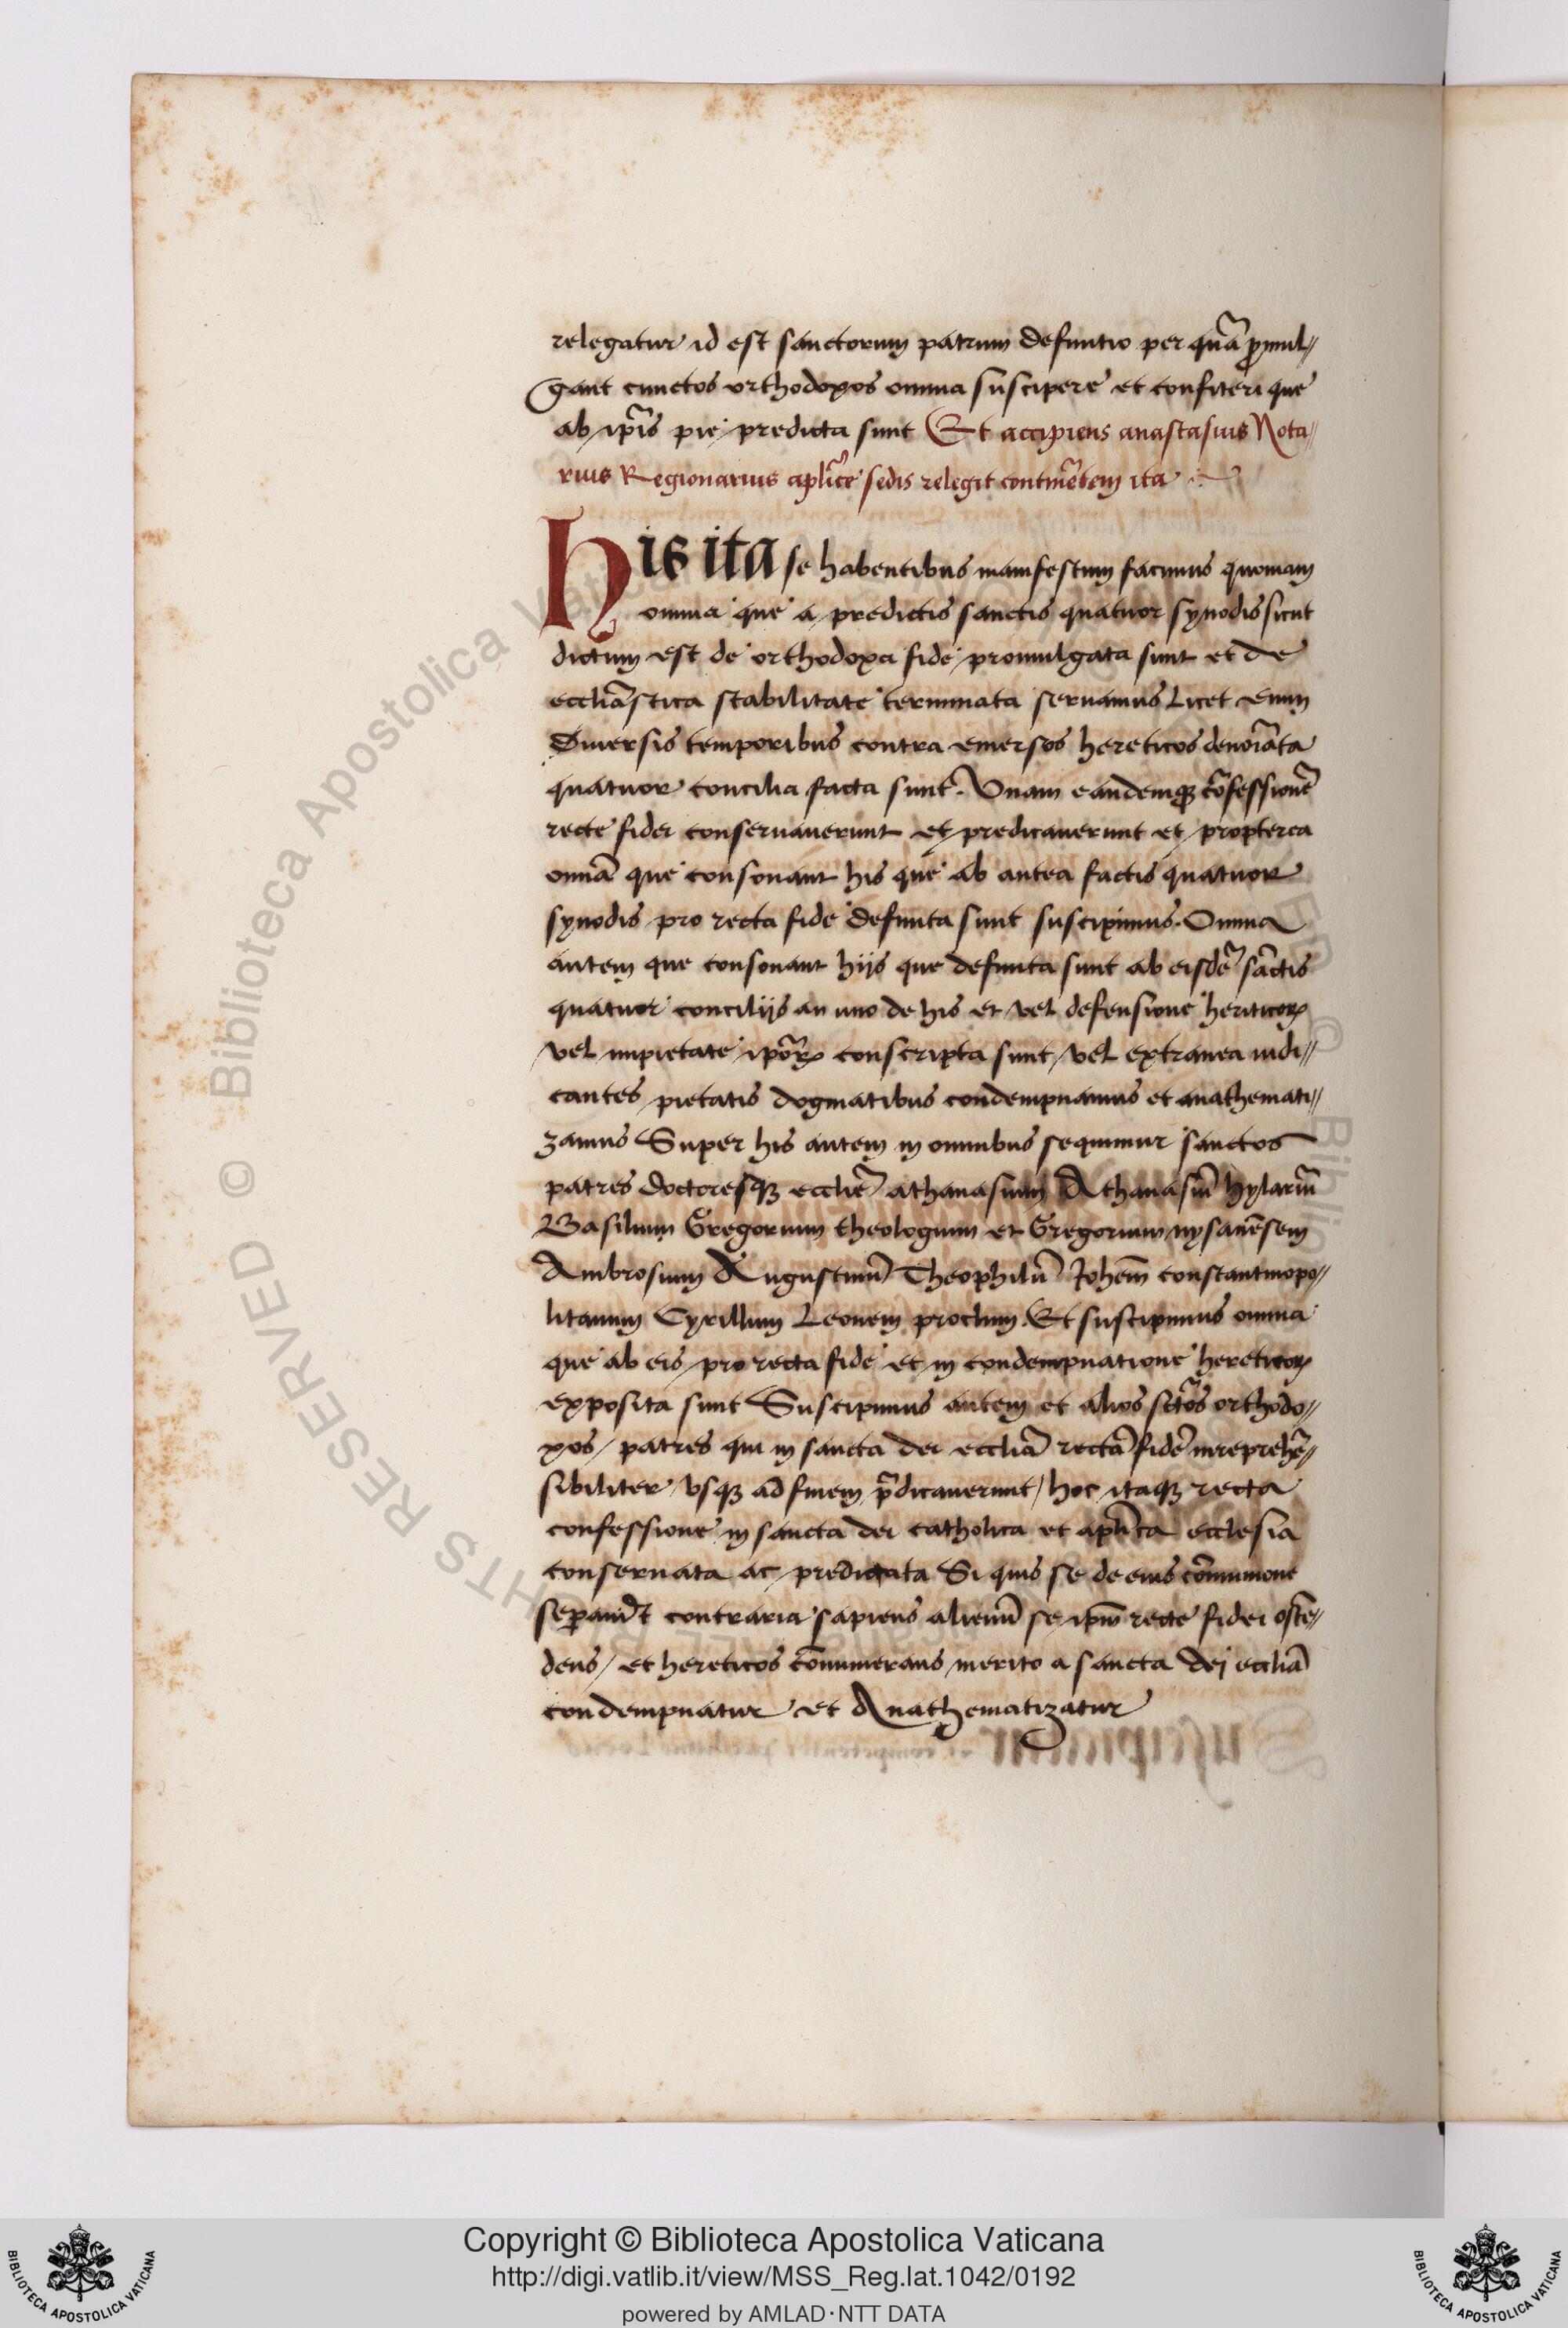 relegatur id est sanctorum patrum definitio per quā ꝓmul//
gant cunctos orthodoxos omnia suscipere et confiteri que
ab ip̄is pie predicta sunt Et accipiens anastasius Nota//
rius Regionarius aplīce sedis relegit contin̄etem ita
His ita se habentibus manifestum facimus quoniam
omnia que a predictis sanctis quatuor synodis sicut
dictum est de orthodoxa fide promulgata sunt et de
eccliāstica stabilitate terminata seruamus Licet enim
Diuersis temporibus contra emersos hereticos denoīata
quatuor concilia facta sunt. Vnam eandemqꝫ cōfessionē
recte fidei conseruauerunt et predicauerunt et propterea
omniā que consonant his que ab antea factis quatuor
synodis pro recta fide definita sunt suscipimus. Omnia
autem que consonant hijs que definita sunt ab eisdē sāctis
quatuor concilijs an uno de his et vel defensione heriticoꝝ
vel impietate ipōꝝ conscripta sunt vel extranea iudi//
cantes pietatis dogmatibus condempnamus et anathemati//
zamus Super his autem in omnibus sequimur sanctos
patres doctoresqꝫ ecclīe athanasium Athanasiū hylariū
Basilium Gregorium theologium et Gregorium nysanēsem
Ambrosium Augustinū Theophilū Johēm constantinopo//
litanum Cyrillum Leonem proclum. Et suscipimus omnia
que ab eis pro recta fide et in condempnatione hereticoꝝ
exposita sunt Suscipimus autem et alios sctōs orthodo//
xos patres qui in sancta dei eccliā rectā fidē irreprehē//
sibiliter vsqꝫ ad finem p̄dicauerunt/ hoc itaqꝫ recta
confessione in sancta dei catholica et aplīca ecclesia
conseruata ac predicata Si quis se de eius cōmunione
seꝑauerit contraria sapiens alienū se ipm̄ recte fidei ostē//
dens/ et hereticos cōnumerans merito a sancta dei eccliā
condempnatur et Anathematizatur
Copyright © Biblioteca Apostolica Vaticana
http://digi.vatlib.it/view/MSS_Reg.lat.1042/0192
powered by AMLAD·NTT DATA
BIBLIOTECA APOSTOLICA VATICANA
BIBLIOTECA APOSTOLICA VATICANA